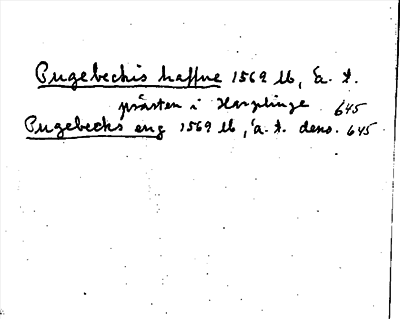 Pugebeckis haffue 1569 lb, ä. t.
prästen i Harplinge 645
Pugebecks eng 1569 lb, ä. t. dens. 645